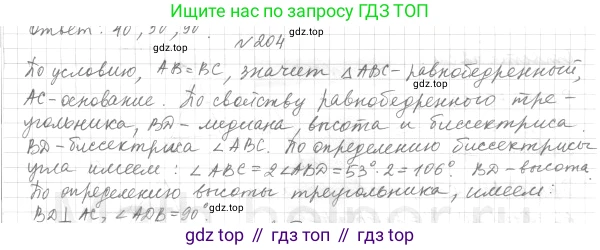 Ищите нас по запросу ГДЗ ТОП!
Ответ: 40°, 50°, 90°.
№204
По условию, AB=BC, значит △ABC-равнобедренный,
AC-основание. По свойству равнобедренного тре-
угольника, BD-медиана, высота и биссектриса.
BD-биссектриса ∠ABC. По определению биссектрисы
угла имеем: ∠ABC=2∠ABD=53°·2=106°. BD-высота.
По определению высоты треугольника, имеем:
BD⊥AC, ∠ADB=90°
gdz.top // gdz.top // gdz.top